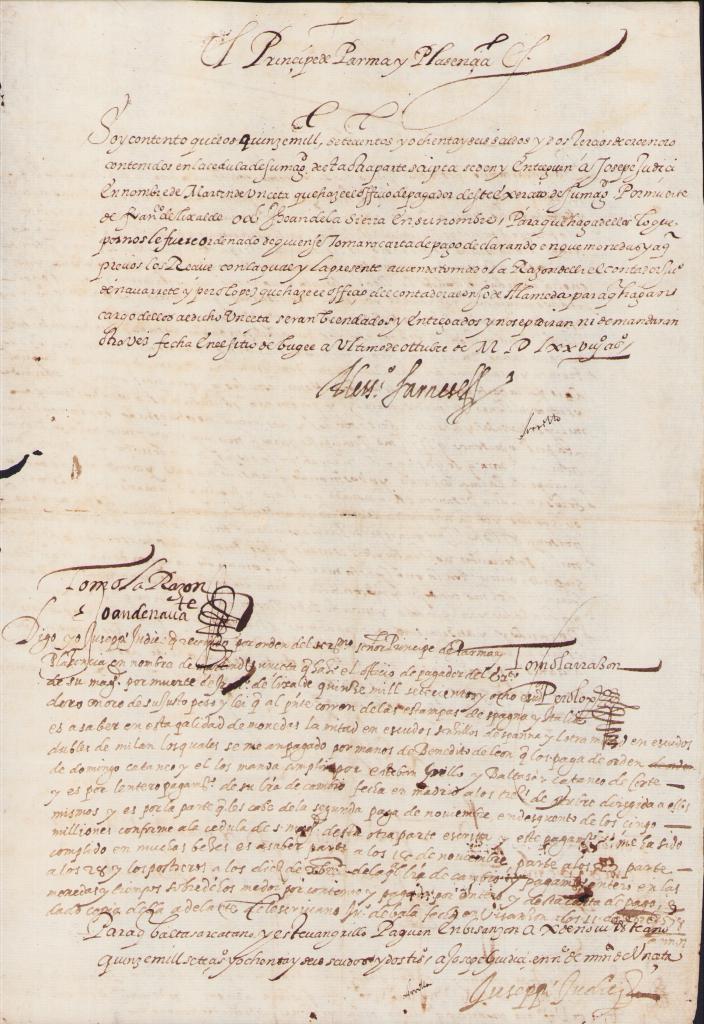 El Principe de Parma y Plasençia Ef.
Soy contento que los quinze mill, setecientos y ochenta y seis scudos y dos tercios de oro en oro
contenidos en la cedula de su mag. desta otra parte scripta se den y Entreguen A Josepe Judici
En nombre de Martin de Unceta que haze el officio de pagador deste Exercito de su mag. Por muerte
de fran.co de Lixalde o a Joan de la Sierra En su nombre, Para que haga dellos lo que
por nos le fuere ordenado de quien se Tomara carta de pago declarando en que monedas y a q
precios los Reciue con la qual y la presente auiendo tomado la Razon della el contador Ju.o
de nauarrete y pero lopez que haze el officio de contador alonso de Alameda para q hagan
cargo dellos al dicho Unceta seran bien dados y Entregados y no se pediran ni demandaran
otra vez fecha En el sitio de buge a Ultimo de ottubre de M D Lxxviij años
Aless.o Farnese
Tomo la Razon
Joan de naua
rte
Digo yo Juseppe Judice q reciuido por orden del ser.mo señor Principe de Parma y
Plasencia en nombre de Martin de Unceta q haze el officio de pagador del Ex.to
Tomo la rrazon
de su mag. por muerte de fr.co de lixalde quinze mill setecientos y ocho
Pero Lopez
de oro en oro de su justo peso y lei q al pnte corren de las estampas de espagna y Italia
es a saber en esta qalidad de monedas la mitad en escudos senzillos de espagna y l otra mitad en escudos
dubles de milan los quales se me an pagado por manos de Benedito de leon q los paga de orden
de domingo cataneo y el los manda cumplir por esteban Grillo y Baltasar cataneo de Corte
y es por l entero pagam.to de su lra de cambio fecha en madrid a los tres de otubre dirigida a ellos
mismos y es por la parte q les cabe de la segunda paga de nouiembre en desquento de los cinqo
milliones conforme a la cedula de s. mag. desta otra parte escrita y este pagam.to se me ha sido
complido en muchas bezes es a saber parte a los 15 de nouiembre, parte a los parte
a los 28 y los postreros a los diez de de la lra de cambio y pagam.to entero en las
monedas y tiempos sobredichos me doy por contento y pagado por entero y desta carta de pago, e
dado copia della adelante del escriuano
Para q baltasar cataneo y esteuan grillo Paguen En bisanzon a x de nou.e 78 te ano
quinze mill setec.os y ochenta y seis scudos y dos ter.s a Josepe Giudici en n.e de m.n de Unceta
Juseppe Judice